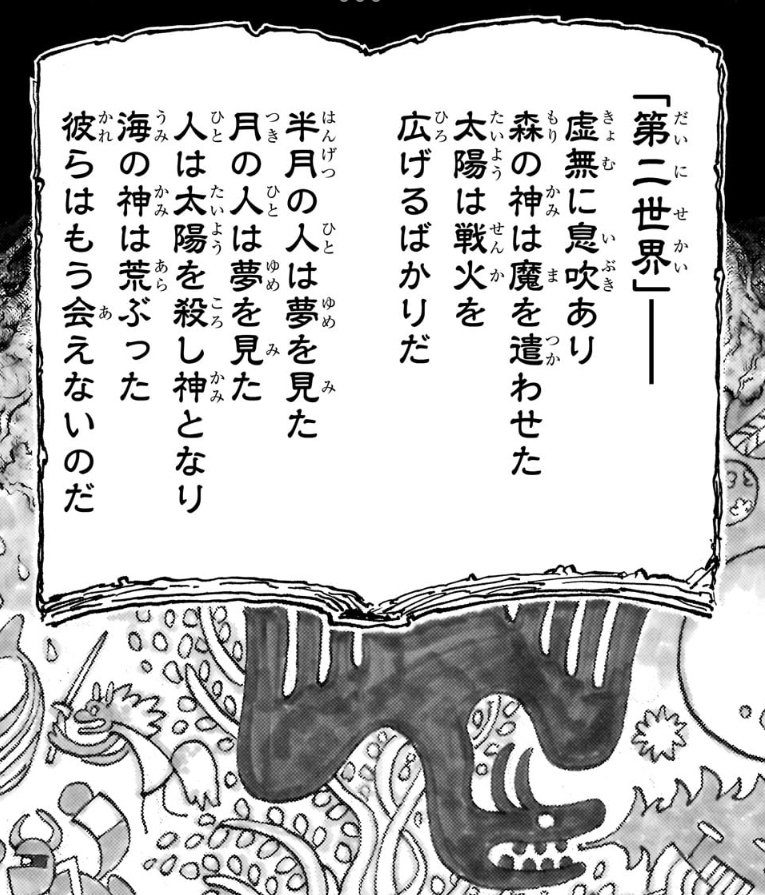 「第二世界」――
虚無に息吹あり
森の神は魔を遣わせた
太陽は戦火を
広げるばかりだ
半月の人は夢を見た
月の人は夢を見た
人は太陽を殺し神となり
海の神は荒ぶった
彼らはもう会えないのだ